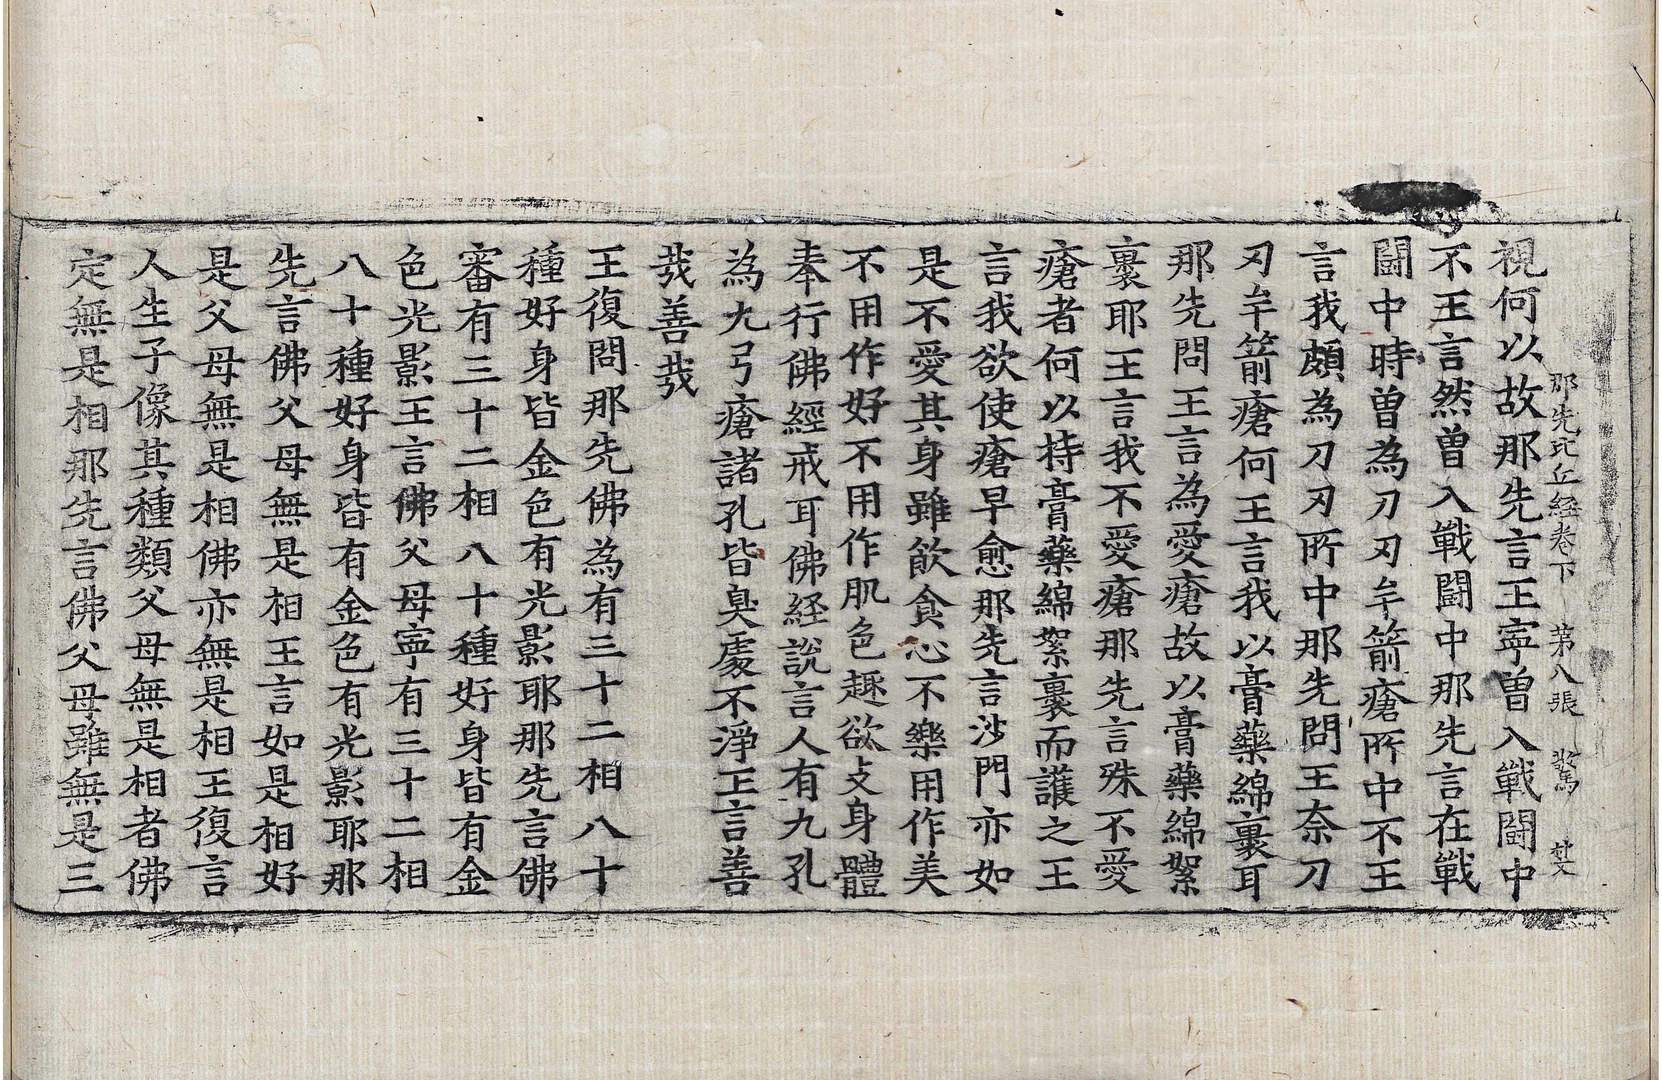 那先比丘經卷下 第八張 驚
視何以故那先言王寧曽入戰鬪中
不王言然曽入戰鬪中那先言在戰
鬪中時曽為刀刃牟箭瘡所中不王
言我頗為刀刃所中那先問王奈刀
刃牟箭瘡何王言我以膏藥綿裹耳
那先問王言為愛瘡故以膏藥綿絮
裹耶王言我不愛瘡那先言殊不愛
瘡者何以持膏藥綿絮裹而護之王
言我欲使瘡早愈那先言沙門亦如
是不愛其身雖飲食心不樂用作美
不用作好不用作肌色趣欲支身體
奉行佛經戒耳佛経說言人有九孔
為九弓瘡諸孔皆臭處不淨王言善
㢤善㢤
王復問那先佛為有三十二相八十
種好身皆金色有光影耶那先言佛
審有三十二相八十種好身皆有金
色光影王言佛父母寧有三十二相
八十種好身皆有金色有光影耶那
先言佛父母無是相王言如是相好
是父母無是相佛亦無是相王復言
人生子像其種類父母無是相者佛
定無是相那先言佛父母雖無是三